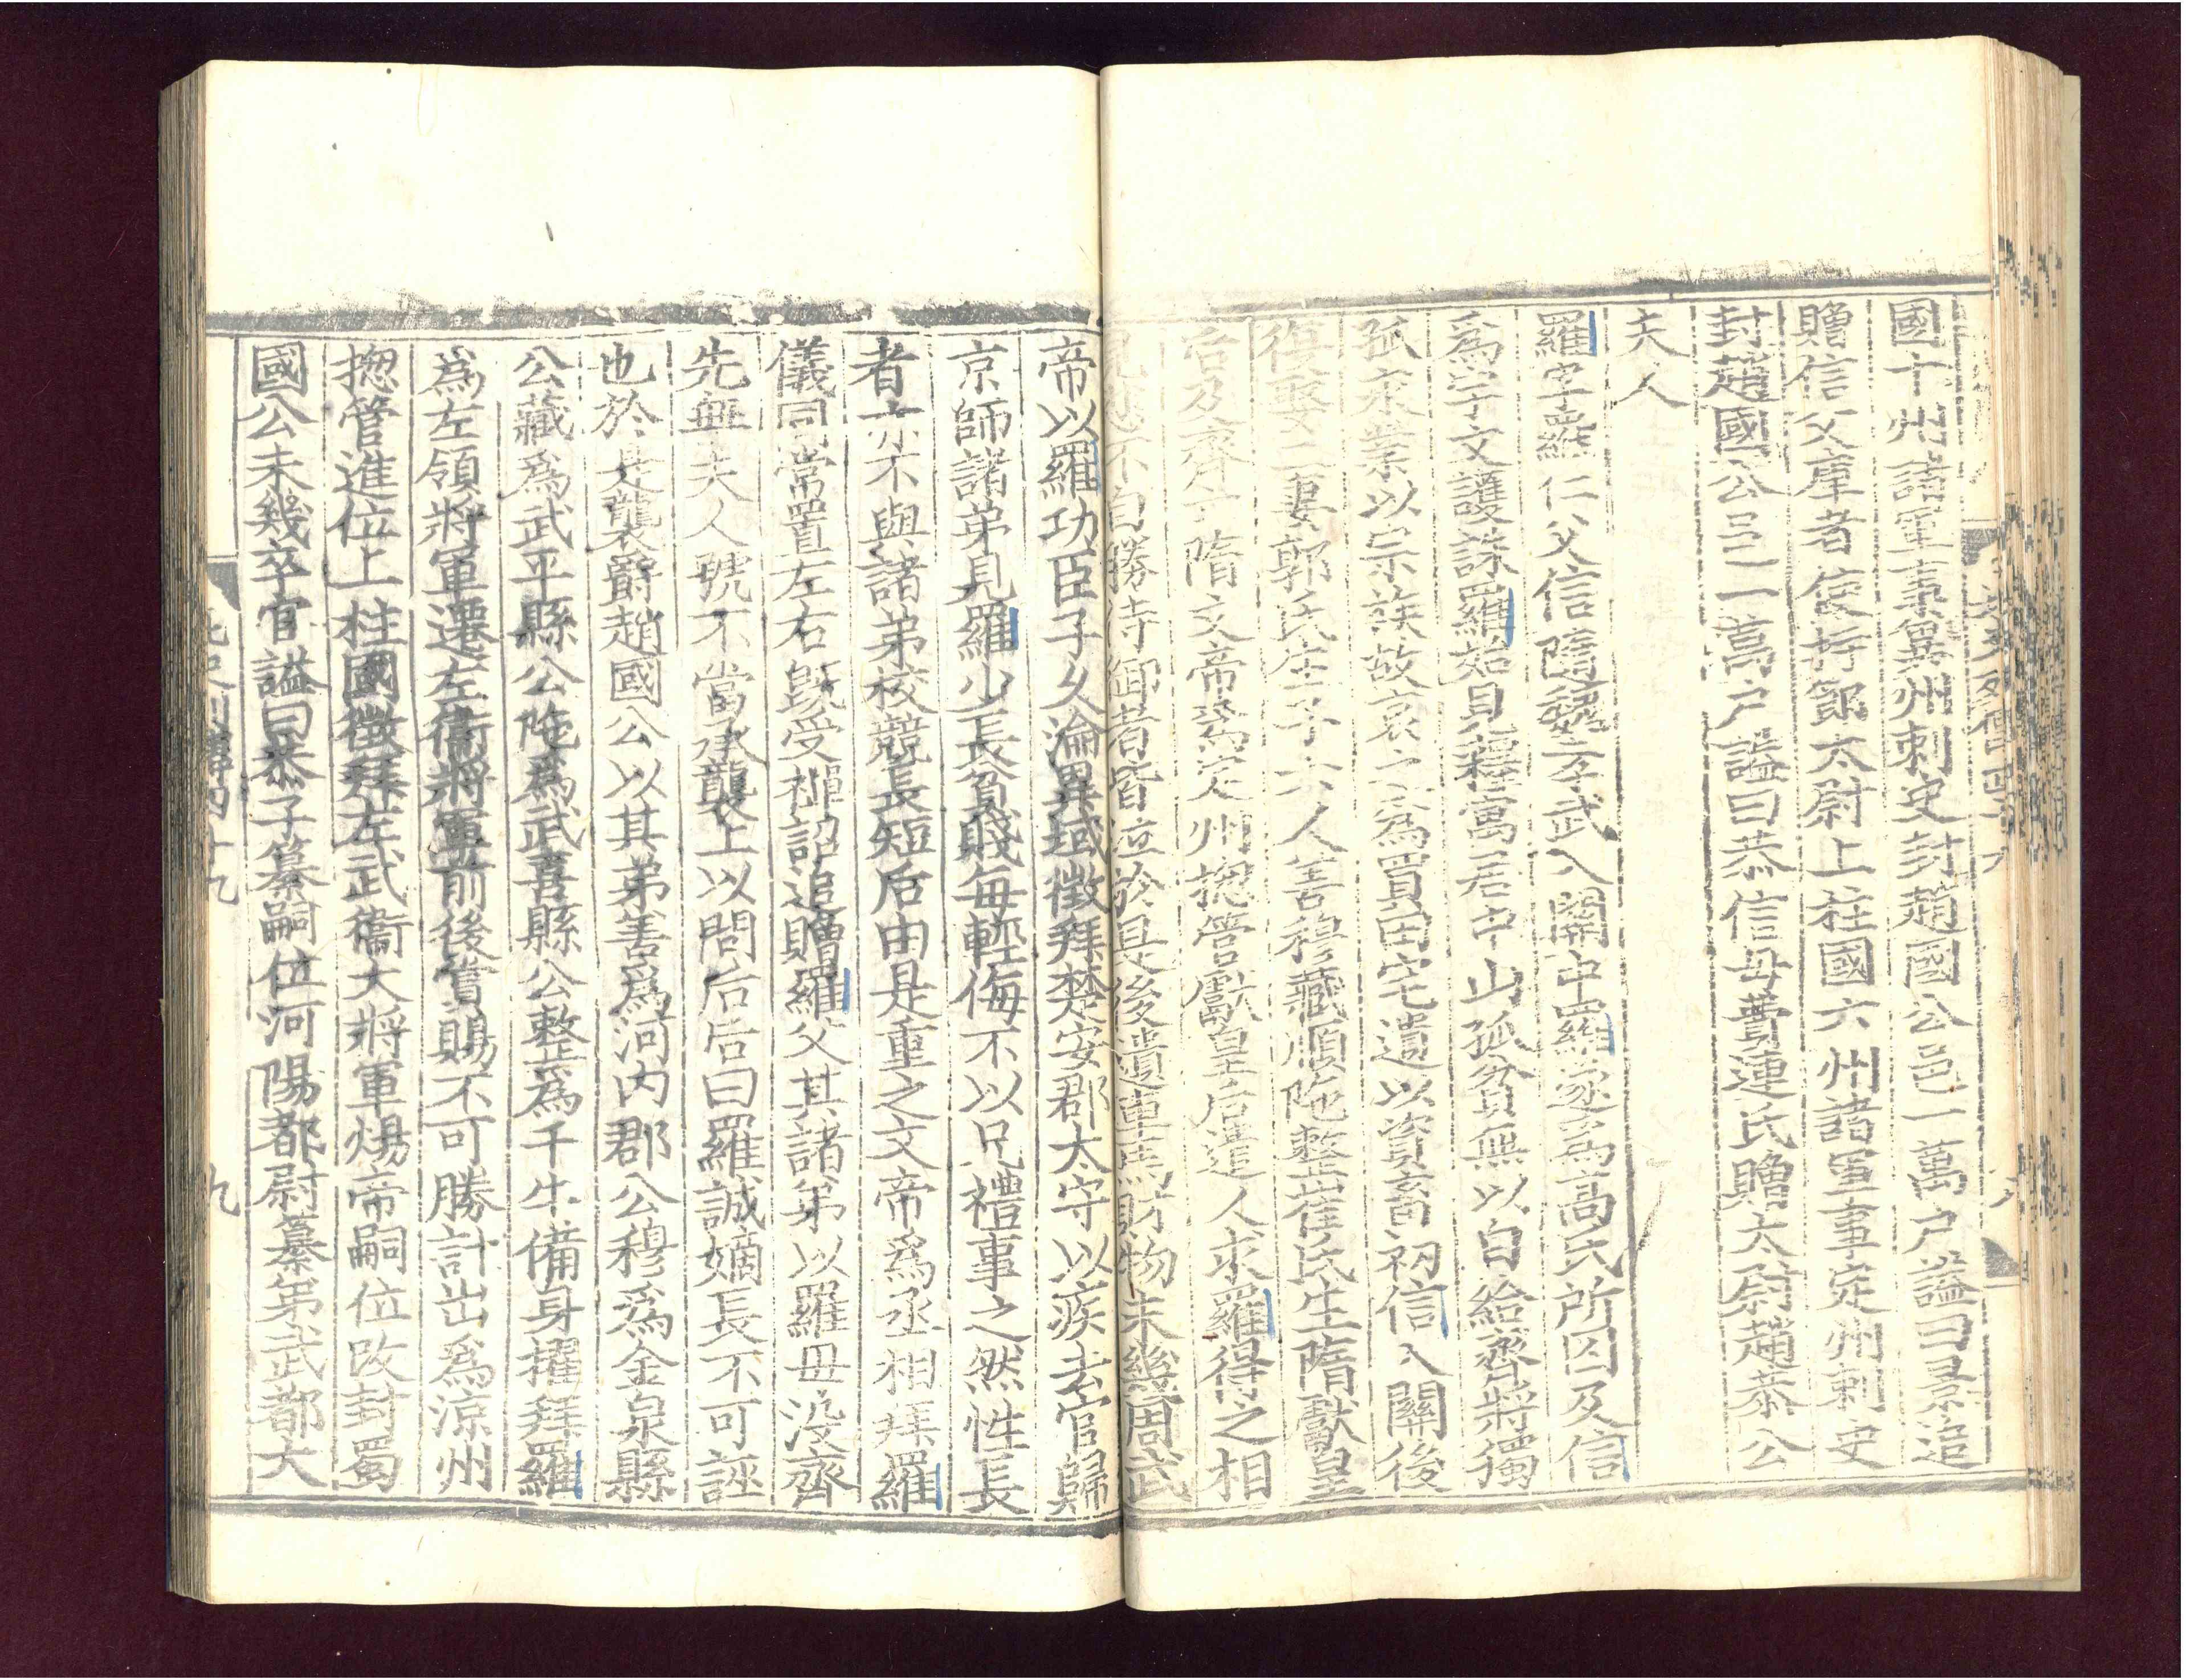 國十州諸軍事兾州刺史封趙國公邑一萬戶謚曰景追
贈信父庫者使持節太尉上柱國六州諸軍事定州刺史
封趙國公邑一萬戶謚曰恭信母費連氏贈太尉趙恭公
夫人
羅字羅仁父信隨魏孝武入關中羅遂爲高氏所囚及信
爲宇文護誅羅始見釋寓居中山孤貧無以自給齊將獨
孤永業以宗族故哀之爲買田宅遺以資畜初信入關後
復娶二妻郭氏生子六人善穆藏順陁整崔氏生隋獻皇
后及齊亡隋文帝爲定州揔管獻皇后遣人求羅得之相
見悲不自勝侍御者皆泣於是後遺車馬財物未幾周武
帝以羅功臣子久淪異域徵拜楚安郡太守以疾去官歸
京師諸弟見羅少長貧賤每輕侮不以兄禮事之然性長
者亦不與諸弟校競長短后由是重之文帝爲丞相拜羅
儀同常置左右旣受禪詔追贈羅父其諸弟以羅母没齊
先無夫人號不當承襲上以問后后曰羅誠嫡長不可誣
也於是襲爵趙國公以其弟善爲河内郡公穆爲金泉縣
公藏爲武平縣公陁爲武喜縣公整爲千牛備身擢拜羅
爲左領將軍遷左衛將軍前後賞賜不可勝計出爲涼州
揔管進位上柱國徵拜左武衛大將軍煬帝嗣位改封蜀
國公未幾卒官謚曰恭子纂嗣位河陽都尉纂弟武都大
北史列傳四十九
九